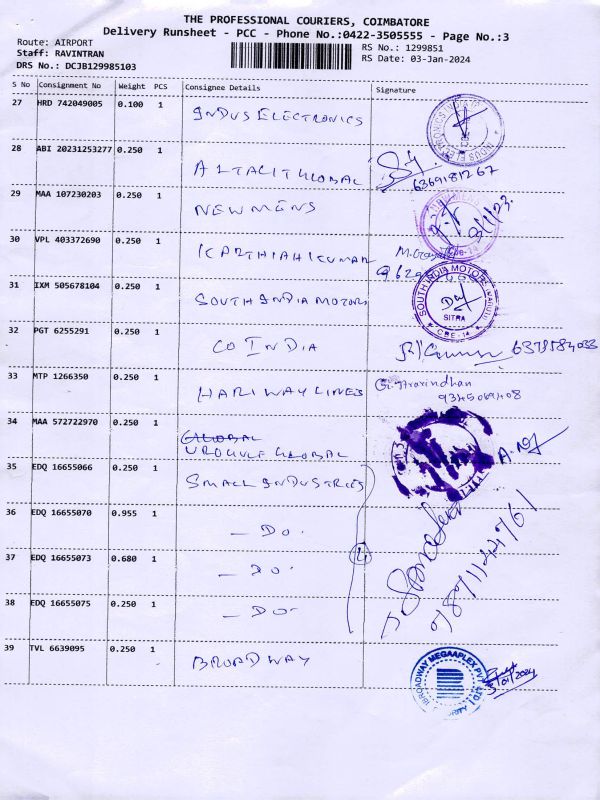 THE PROFESSIONAL COURIERS, COIMBATORE
Delivery Runsheet - PCC - Phone No.:0422-3505555 - Page No.:3
Route: AIRPORT
Staff: RAVINTRAN
DRS No.: DCJB129985103
RS No.: 1299851
RS Date: 03-Jan-2024
S No Consignment No Weight PCS Consignee Details Signature
27 HRD 742049005 0.100 1 INDUS ELECTRONICS
INDUS ELECTRONICS INDIA
28 ABI 20231253277 0.250 1 GLOBAL
6369181267
29 MAA 107230203 0.250 1 NEWMENS
30 VPL 403372690 0.250 1 KARTHIAHIKUMAR
31 IXM 505678104 0.250 1 SOUTH INDIA MOTORS
SOUTH INDIA MOTORS
SITRA
CBE-14
32 PGT 6255291 0.250 1 CO INDIA
6378584033
33 MTP 1266350 0.250 1 HARI WAY LINES
G. Aravindhan
9345069408
34 MAA 572722970 0.250 1 GLOBAL
GLOBAL
35 EDQ 16655066 0.250 1 SMALL INDUSTRIES
36 EDQ 16655070 0.955 1 - DO -
37 EDQ 16655073 0.680 1 - DO -
4
38 EDQ 16655075 0.250 1 - DO -
39 TVL 6639095 0.250 1 BROADWAY
BROADWAY MEGAAPLEX PVT LTD
3/01/2024